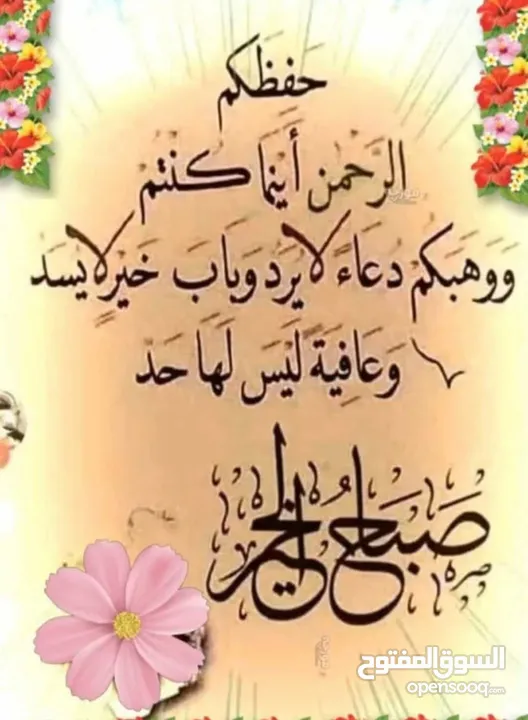 حَفظَكم
الرَحمن أَينَما كنتم
وَوَهَبَكم دُعَاءً لا يُرَد وَبَابَ خَيرٍ لا يُسَد
وَعَافِيَةً لَيسَ لَهَا حَد
صَبَاحُ الخَير
السوق المفتوح
opensooq.com